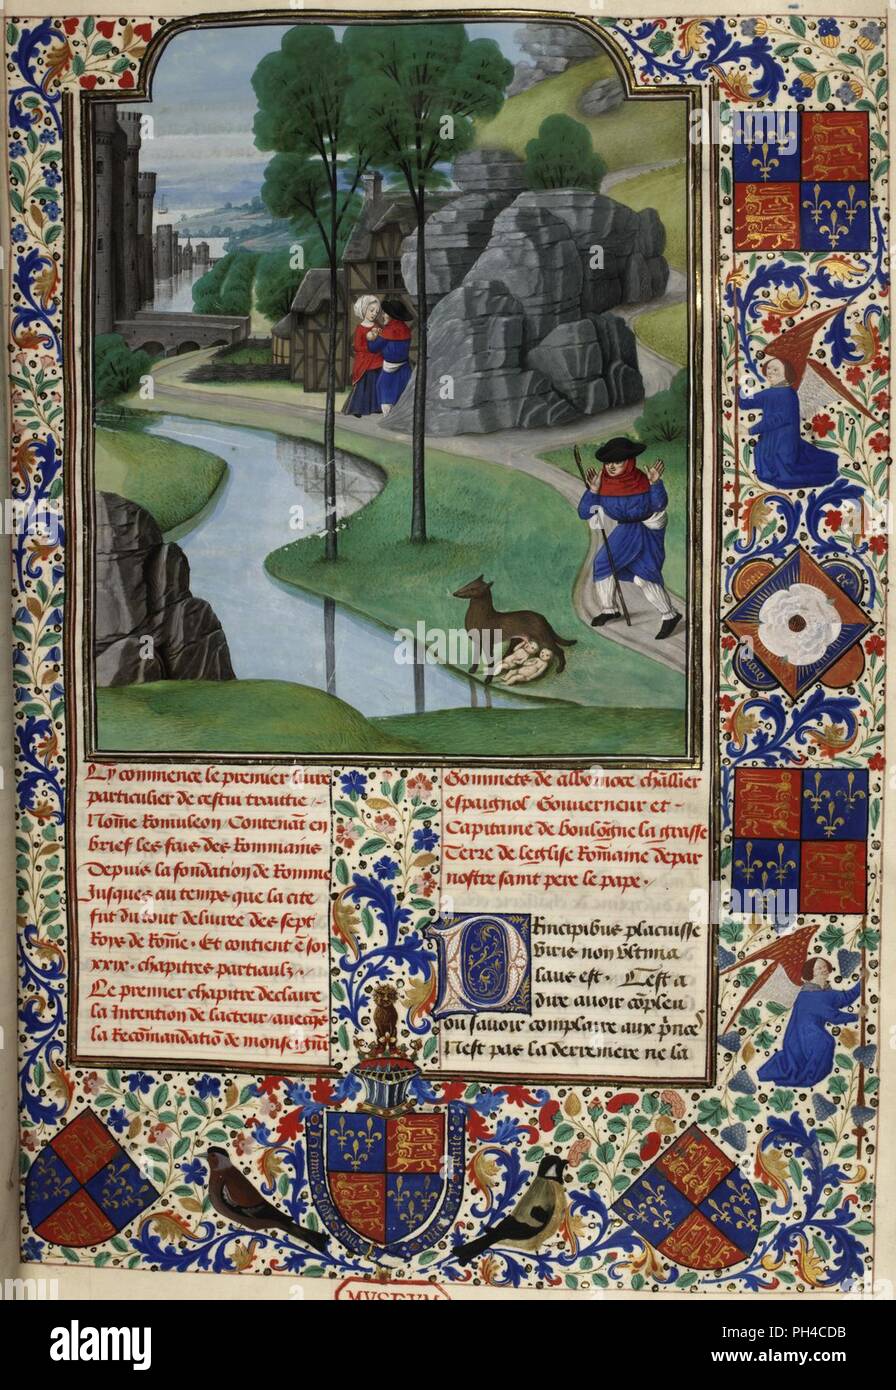 Cy commence le premier livre
particulier de cestui traittie
Nõme Romuleon Contenãt en
brief les fais des Rommains
Depuis la fondation de Romme
Jusques au temps que la cite
fut du tout deliuree des sept
Roys de Rõme. Et contient ẽ soy
xxix. chapitres partiaulz.
Le premier chapitre declaire
la Intention de lacteur /auecqs
la Recõmandatiõ de monseignr
Gommets de albornoce chlĩer
espaignol Gouuerneur et
Capitaine de boulogne la grasse
Terre de leglise Rõmaine de par
nostre saint pere le pape.
PRincipibus placuisse
viris non vltima
laus est. Cest a
dire auoir cõpleu
ou sauoir complaire aux prĩces
Nest pas la derreniere ne la
MVSEVM
alamy
alamy
Image ID: PH4CDB
www.alamy.com